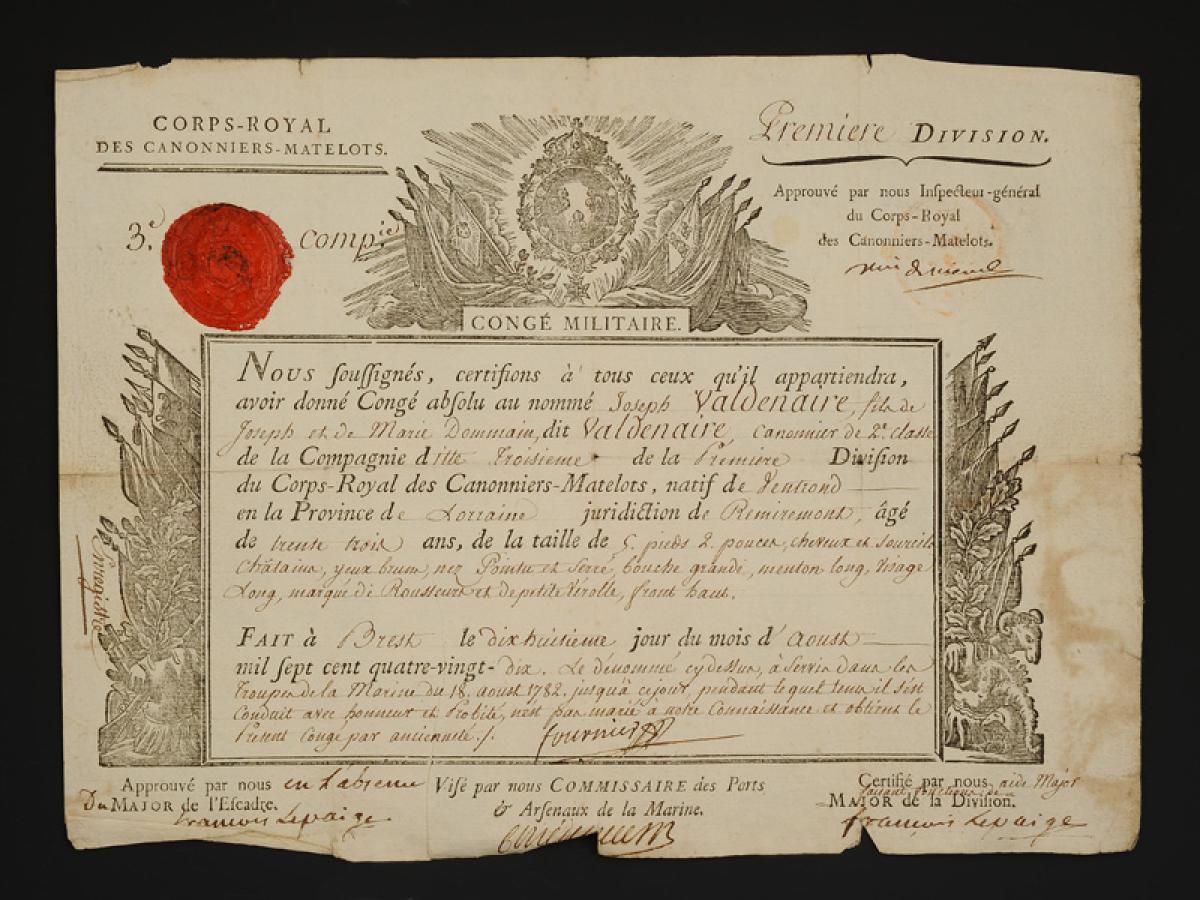 CORPS-ROYAL
DES CANONNIERS-MATELOTS.
Premiere DIVISION.
3.e Comp.ie
Approuvé par nous Inspecteur-général
du Corps-Royal
des Canonniers-Matelots.
CONGÉ MILITAIRE.
NOUS soussignés, certifions à tous ceux qu'il appartiendra,
avoir donné Congé absolu au nommé Joseph Valdenaire, fils de
Joseph et de Marie Dommain, dit Valdenaire, Canonnier de 2.e Classe
de la Compagnie ditte troisieme de la Premiere Division
du Corps-Royal des Canonniers-Matelots, natif de Ventrond
en la Province de Lorraine juridiction de Remiremont, âgé
de trente trois ans, de la taille de 5. pieds 2. pouces, cheveux et sourcils
Châtains, yeux brun, nez Pointu et Serré, bouche grande, menton long, Visage
Long, marqué de Rousseurs et de petite Vérolle, front haut.
Enregistré
FAIT à Brest le dix huitieme jour du mois d'Aoust
mil sept cent quatre-vingt-dix. Le dénommé cy dessus, à Servir dans les
troupes de la Marine du 18. aoust 1782. jusqu'à ce jour, pendant le quel tems il s'est
Conduit avec honneur et Probité, n'est pas marié à notre Connaissance et obtient le
Présent Congé par ancienneté ./. fournier
Approuvé par nous en L'absence
Du MAJOR de l'Escadre.
francois Lepaige
Visé par nous COMMISSAIRE des Ports
& Arsenaux de la Marine.
Certifié par nous, aide Major
faisant fonctions de
MAJOR de la Division.
francois Lepaige